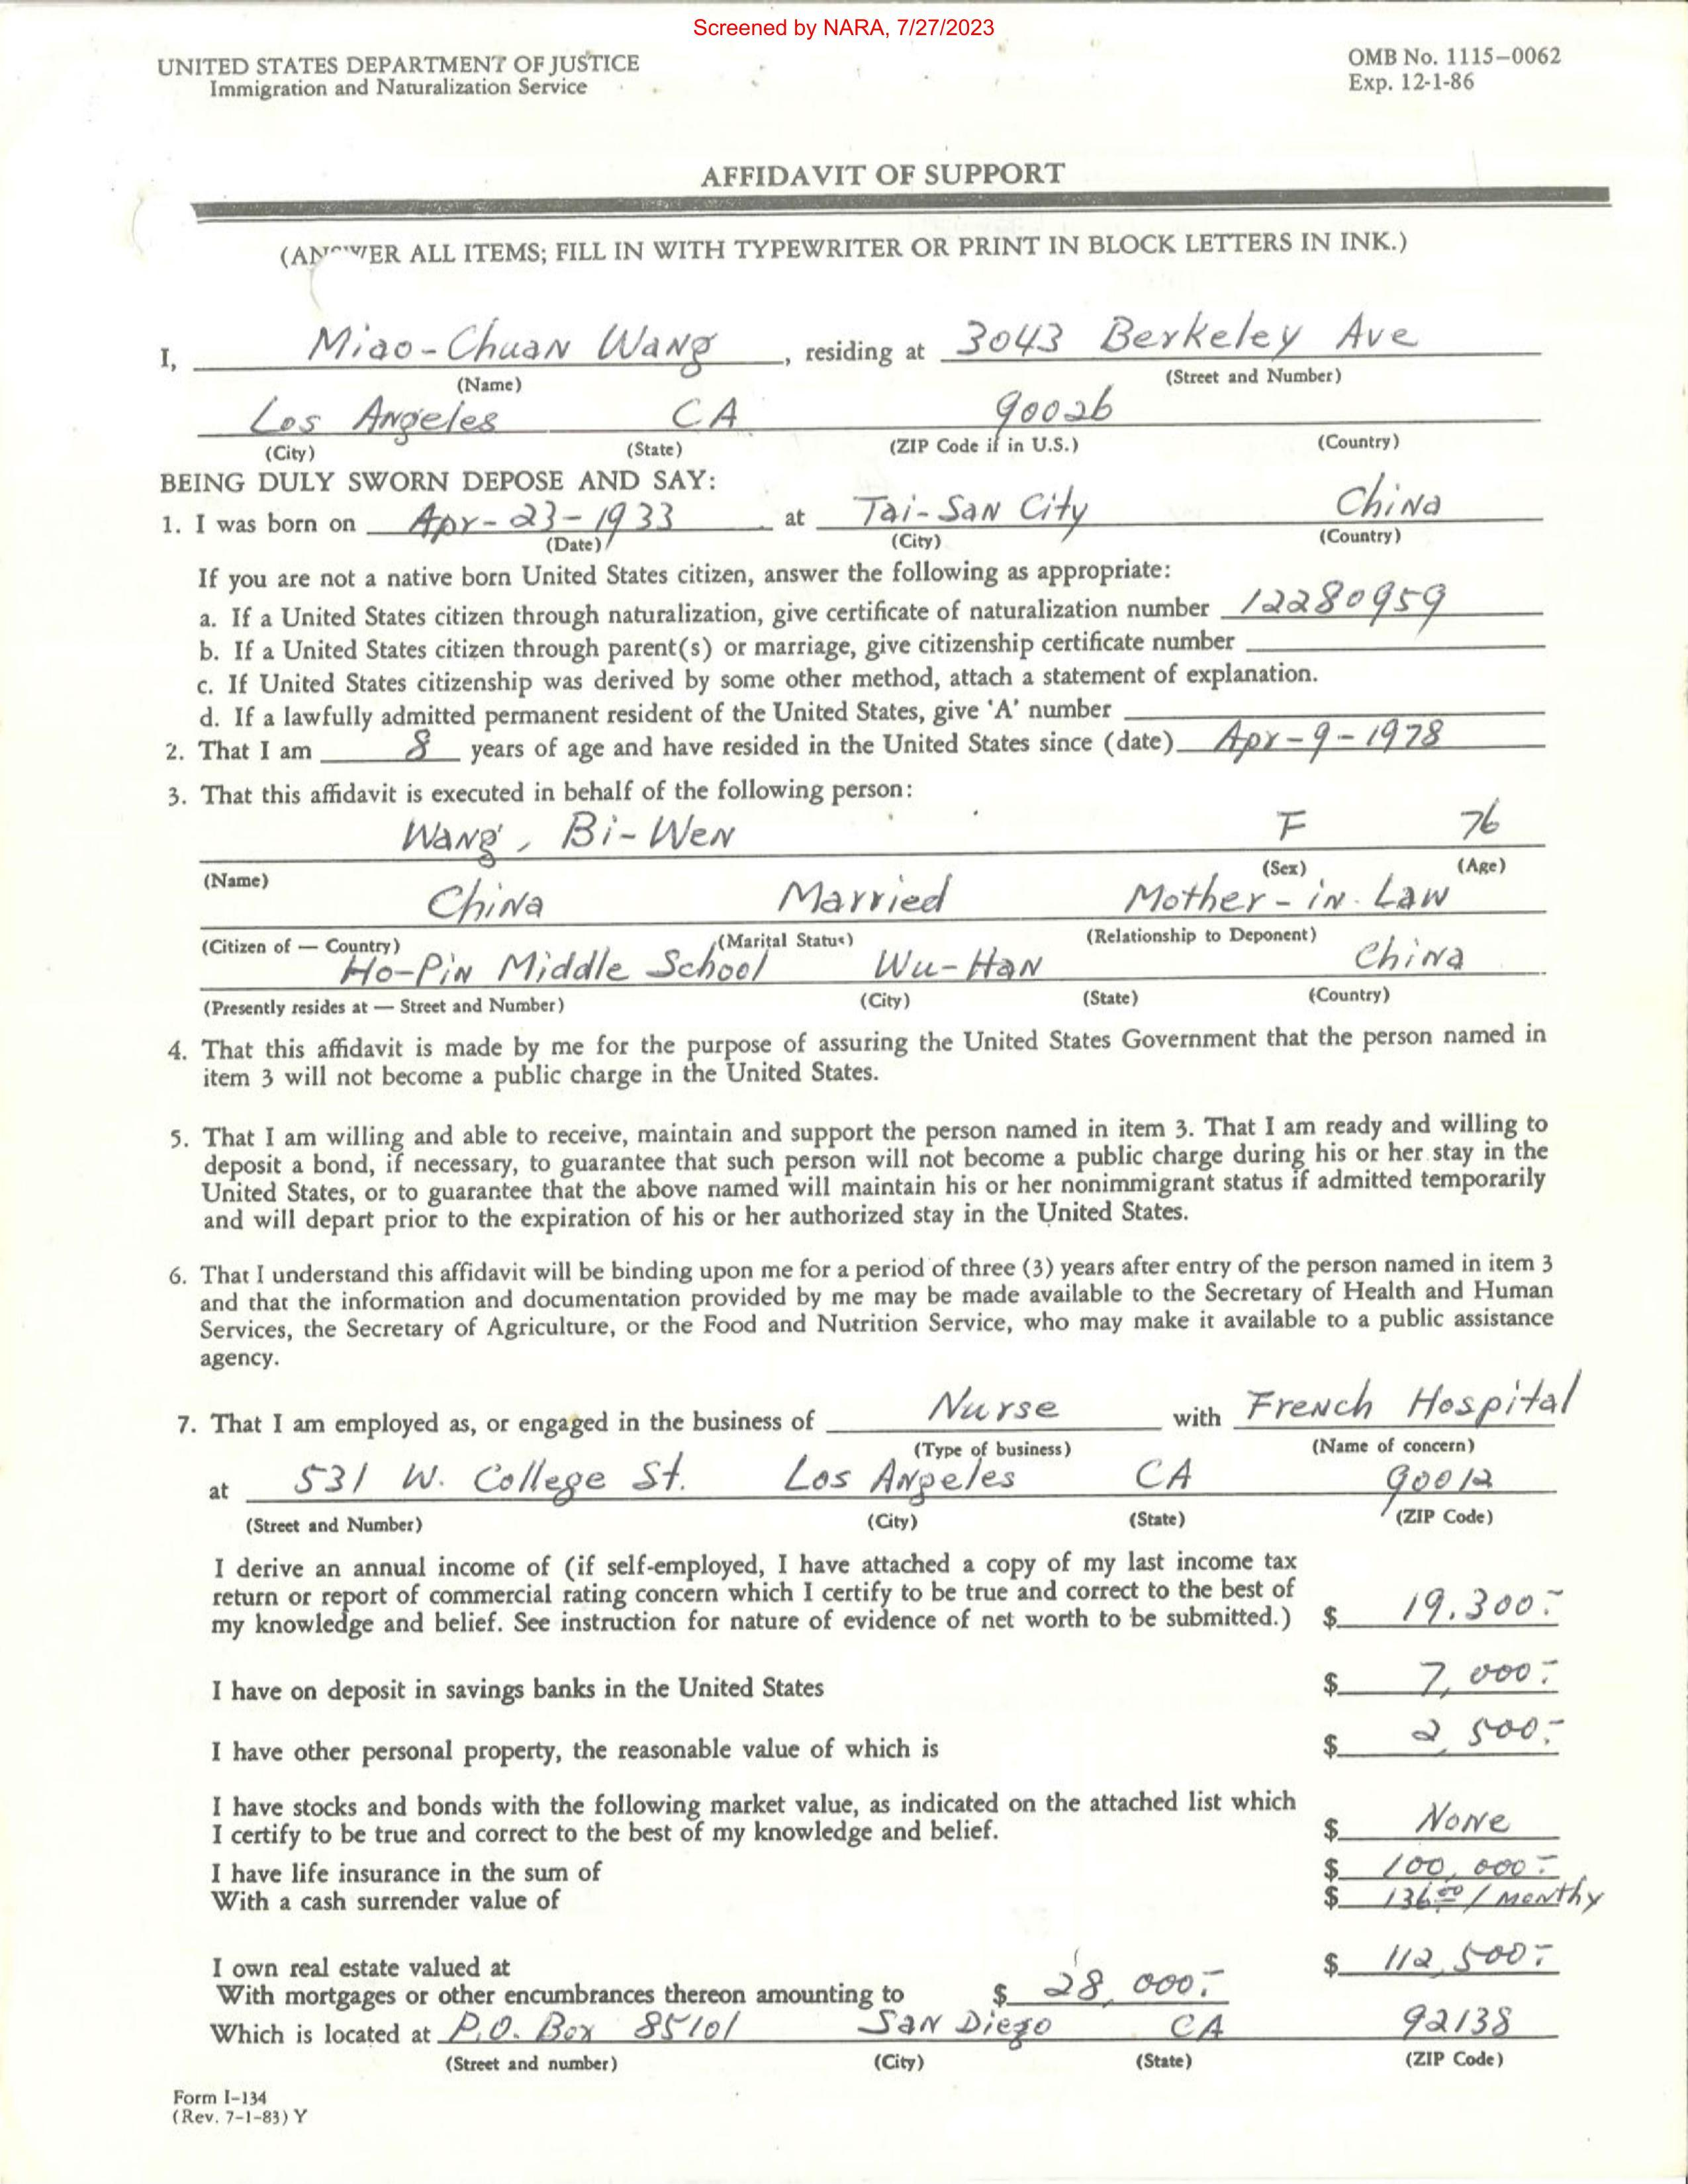 Screened by NARA, 7/27/2023
UNITED STATES DEPARTMENT OF JUSTICE
Immigration and Naturalization Service
OMB No. 1115-0062
Exp. 12-1-86
AFFIDAVIT OF SUPPORT
(ANSWER ALL ITEMS; FILL IN WITH TYPEWRITER OR PRINT IN BLOCK LETTERS IN INK.)
I, Miao-Chuan Wang, residing at 3043 Berkeley Ave
(Name) (Street and Number)
Los Angeles CA 90026
(City) (State) (ZIP Code if in U.S.) (Country)
BEING DULY SWORN DEPOSE AND SAY:
1. I was born on Apr-23-1933 at Tai-San City China
(Date) (City) (Country)
If you are not a native born United States citizen, answer the following as appropriate:
a. If a United States citizen through naturalization, give certificate of naturalization number 12280959
b. If a United States citizen through parent(s) or marriage, give citizenship certificate number
c. If United States citizenship was derived by some other method, attach a statement of explanation.
d. If a lawfully admitted permanent resident of the United States, give 'A' number
2. That I am 8 years of age and have resided in the United States since (date) Apr-9-1978
3. That this affidavit is executed in behalf of the following person:
Wang, Bi-Wen F 76
(Name) (Sex) (Age)
China Married Mother-in-Law
(Citizen of — Country) (Marital Status) (Relationship to Deponent)
Ho-Pin Middle School Wu-Han China
(Presently resides at — Street and Number) (City) (State) (Country)
4. That this affidavit is made by me for the purpose of assuring the United States Government that the person named in
item 3 will not become a public charge in the United States.
5. That I am willing and able to receive, maintain and support the person named in item 3. That I am ready and willing to
deposit a bond, if necessary, to guarantee that such person will not become a public charge during his or her stay in the
United States, or to guarantee that the above named will maintain his or her nonimmigrant status if admitted temporarily
and will depart prior to the expiration of his or her authorized stay in the United States.
6. That I understand this affidavit will be binding upon me for a period of three (3) years after entry of the person named in item 3
and that the information and documentation provided by me may be made available to the Secretary of Health and Human
Services, the Secretary of Agriculture, or the Food and Nutrition Service, who may make it available to a public assistance
agency.
7. That I am employed as, or engaged in the business of Nurse with French Hospital
(Type of business) (Name of concern)
at 531 W. College St. Los Angeles CA 90012
(Street and Number) (City) (State) (ZIP Code)
I derive an annual income of (if self-employed, I have attached a copy of my last income tax
return or report of commercial rating concern which I certify to be true and correct to the best of
my knowledge and belief. See instruction for nature of evidence of net worth to be submitted.) $ 19,300.-
I have on deposit in savings banks in the United States $ 7,000.-
I have other personal property, the reasonable value of which is $ 2,500.-
I have stocks and bonds with the following market value, as indicated on the attached list which
I certify to be true and correct to the best of my knowledge and belief. $ None
I have life insurance in the sum of $ 100,000.-
With a cash surrender value of $ 136.00 / Monthy
I own real estate valued at $ 112,500.-
With mortgages or other encumbrances thereon amounting to $ 28,000.-
Which is located at P.O. Box 85101 San Diego CA 92138
(Street and number) (City) (State) (ZIP Code)
Form I-134
(Rev. 7-1-83) Y